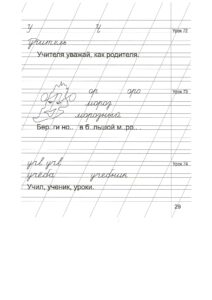 У У Урок 72
Учитель
Учителя уважай, как родителя.
ор оро Урок 73
мороз
морозный
Бер.. ги но.. в б.. льшой м..ро.. .
учв учв Урок 74
учеба учебник
Учил, ученик, уроки.
29